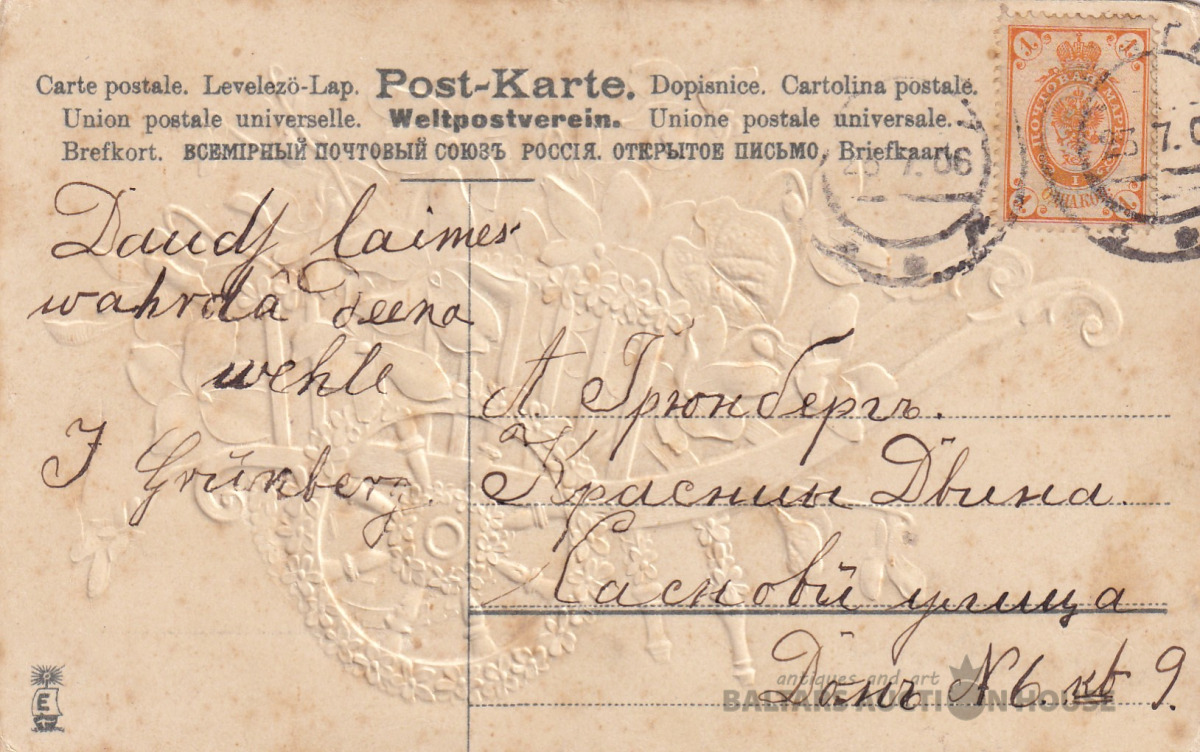 Carte postale. Levelezö-Lap. Post-Karte. Dopisnice. Cartolina postale.
Union postale universelle. Weltpostverein. Unione postale universale.
Brefkort. ВСЕМІРНЫЙ ПОЧТОВЫЙ СОЮЗЪ РОССІЯ. ОТКРЫТОЕ ПИСЬМО. Briefkaart.
1 1
ПОЧТОВАЯ МАРКА
1
1 1
25 7. 06
25 7. 0
Daudſ laimes
wahrda deena
wehle
J Grünberg.
А. Грюнбергъ.
Красныи Двина.
улица
N 6. кв 9.
E
antiques and art
BALTARS AUCTION HOUSE